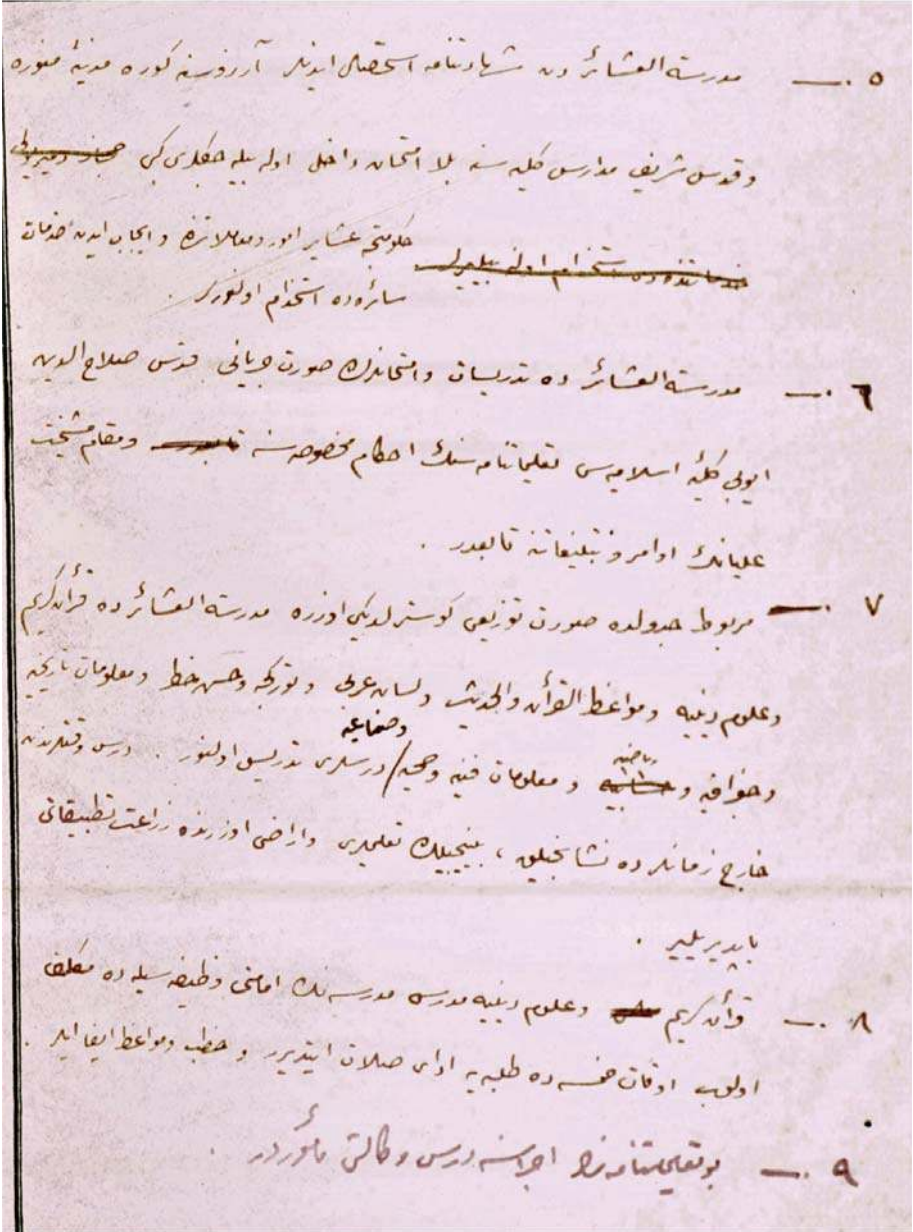 ٥ — مدرسة العشائردن شهادتنامه استحصال ایدنلر آرزوسنه كوره مدینۀ منوره
و قدس شریف مدارس كلیه سنه بلا امتحان داخل اوله بیله جكلری كبی
خدماتنده دخی استخدام اوله بیلیرلر حكومتجه عشایر امور و معاملاتنده و ایجاب ایدن خدمات
سائره ده استخدام اولنورلر .
٦ — مدرسة العشائرده تدریسات و امتحانلرك صورت جریانی قدس صلاح الدین
ایوبی كلیۀ اسلامیه سی تعلیماتنامه سنك احكام مخصوصه سنه و مقام مشیخت
علیانك اوامر و تبلیغاتنه تابعدر .
٧ — مربوط جدولده صورت توزیعی كوسترلدیكی اوزره مدرسة العشائرده قرآن كریم
و علوم دینیه و مواعظ القرآن والحدیث و لسان عربی و توركجه و حسن خط و معلومات تاریخیه
و جغرافیه و حسابیه ریاضیه و معلومات فنیه و صحیه / و صناعیه درسلری تدریس اولنور . درس وقتلرندن
خارج زمانلرده نشانجیلق ، بینیجیلك تعلیملری و اراضی اوزرنده زراعت تطبیقاتی
یاپدیریلیر .
٨ — قرآن كریم و علوم دینیه مدرسی مدرسه نك امامتی وظیفه سیله ده مكلف
اولوب اوقات خمسه ده طلبه یه ادای صلات ایتدیرر و خطب و مواعظ ایفا ایلر .
٩ — بو تعلیماتنامه نك اجراسنه درس وكالتی مأموردر .